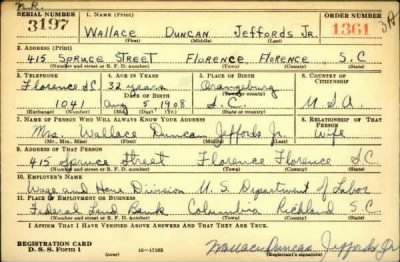 N.R.
SERIAL NUMBER 1. NAME (Print) ORDER NUMBER
3197 Wallace Duncan Jeffords Jr. 1361
(First) (Middle) (Last)
2. ADDRESS (Print)
415 Spruce Street Florence, Florence, S.C
(Number and street or R. F. D. number) (Town) (County) (State)
3. TELEPHONE 4. AGE IN YEARS 5. PLACE OF BIRTH 6. COUNTRY OF CITIZENSHIP
Florence SC 32 years Orangeburg
DATE OF BIRTH
1041 Aug 5 1908 S.C. U S A
(Exchange) (Number) (Mo.) (Day) (Yr.) (State or country)
7. NAME OF PERSON WHO WILL ALWAYS KNOW YOUR ADDRESS 8. RELATIONSHIP OF THAT PERSON
Mrs. Wallace Duncan Jeffords Jr. Wife
(Mr., Mrs., Miss) (First) (Middle) (Last)
9. ADDRESS OF THAT PERSON
415 Spruce Street Florence Florence SC
(Number and street or R. F. D. number) (Town) (County) (State)
10. EMPLOYER'S NAME
Wage and Hour Division U. S. Department of Labor
11. PLACE OF EMPLOYMENT OR BUSINESS
Federal Land Bank Columbia Richland S.C.
(Number and street or R. F. D. number) (Town) (County) (State)
I AFFIRM THAT I HAVE VERIFIED ABOVE ANSWERS AND THAT THEY ARE TRUE.
REGISTRATION CARD
D. S. S. Form 1 (over) 16—17105 Wallace Duncan Jeffords Jr
(Registrant's signature)